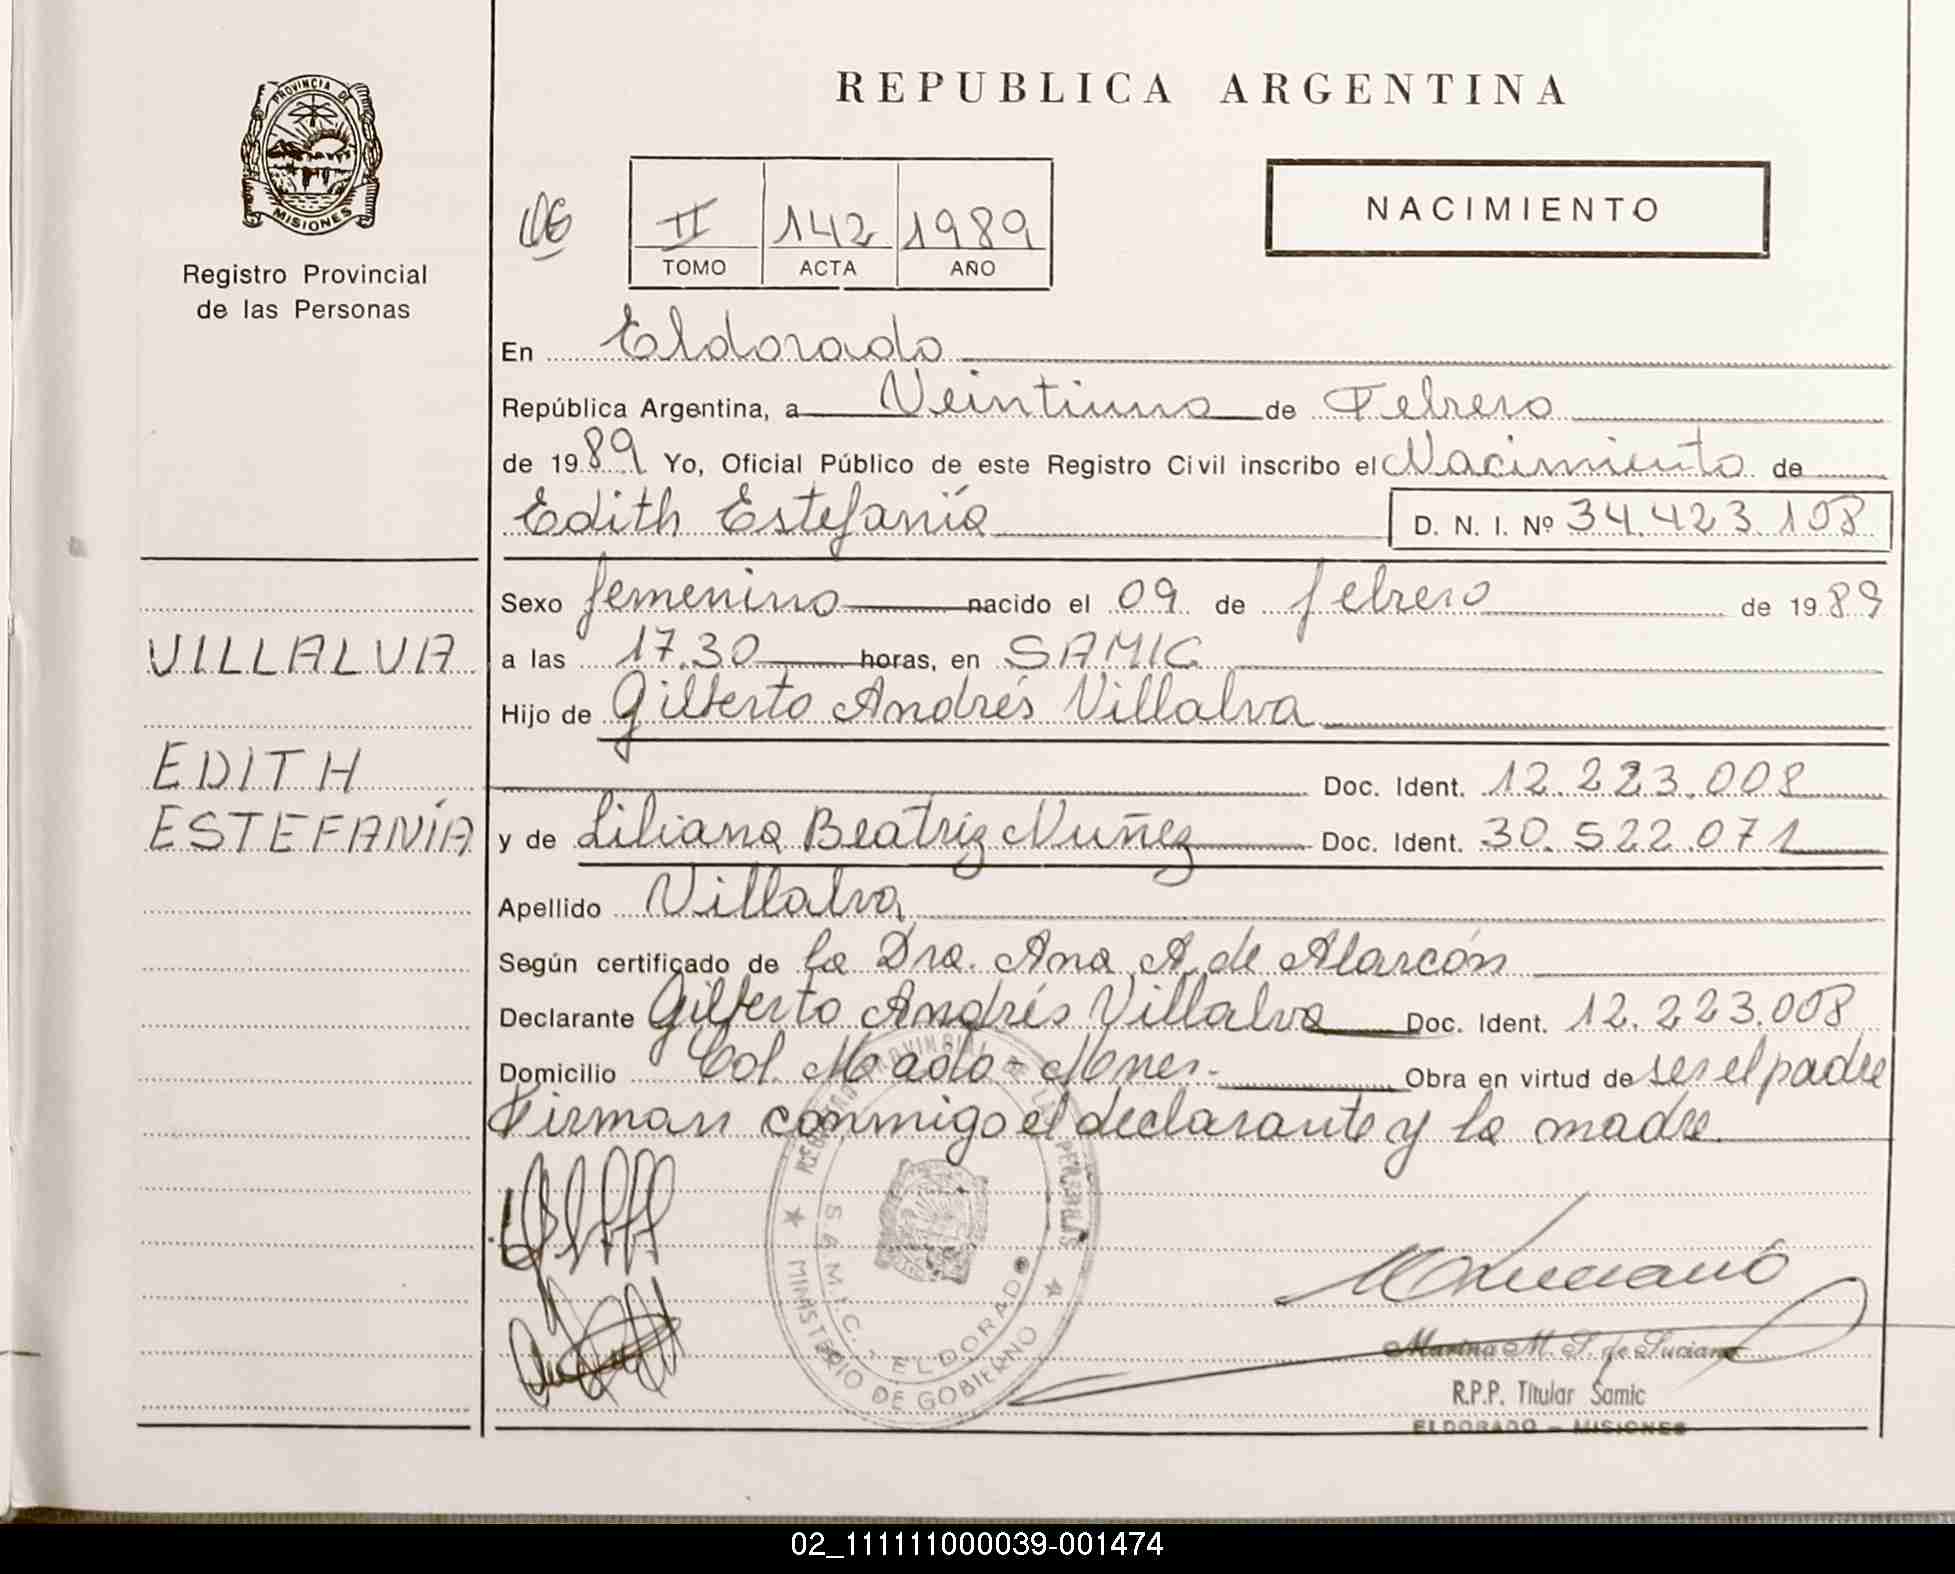 PROVINCIA DE
MISIONES
Registro Provincial
de las Personas
REPUBLICA ARGENTINA
II 142 1989
TOMO ACTA AÑO
NACIMIENTO
En Eldorado
República Argentina, a Veintiuno de Febrero
de 1989 Yo, Oficial Público de este Registro Civil inscribo el Nacimiento de
Edith Estefanía D. N. I. Nº 34.423.108
Sexo femenino nacido el 09 de febrero de 1989
VILLALVA
a las 17.30 horas, en SAMIC
Hijo de Gilberto Andrés Villalva
EDITH
Doc. Ident. 12.223.008
ESTEFANÍA
y de Liliana Beatriz Nuñez Doc. Ident. 30.522.071
Apellido Villalva
Según certificado de la Dra. Ana A. de Alarcón
Declarante Gilberto Andrés Villalva Doc. Ident. 12.223.008
Domicilio Col. Maado - Mnes. Obra en virtud de ser el padre
Firman conmigo el declarante y la madre
REGISTRO PROVINCIAL DE LAS PERSONAS
S.A.M.I.C. - ELDORADO
MINISTERIO DE GOBIERNO
Marina M. S. de Luciano
R.P.P. Titular Samic
ELDORADO - MISIONES
02_111111000039-001474